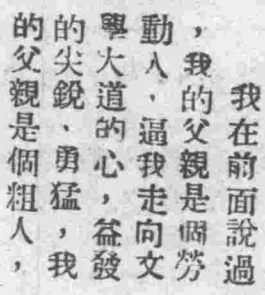 我在前面說過
，我的父親是個勞
動人．逼我走向文
學大道的心，益發
的尖銳、勇猛，我
的父親是個粗人，